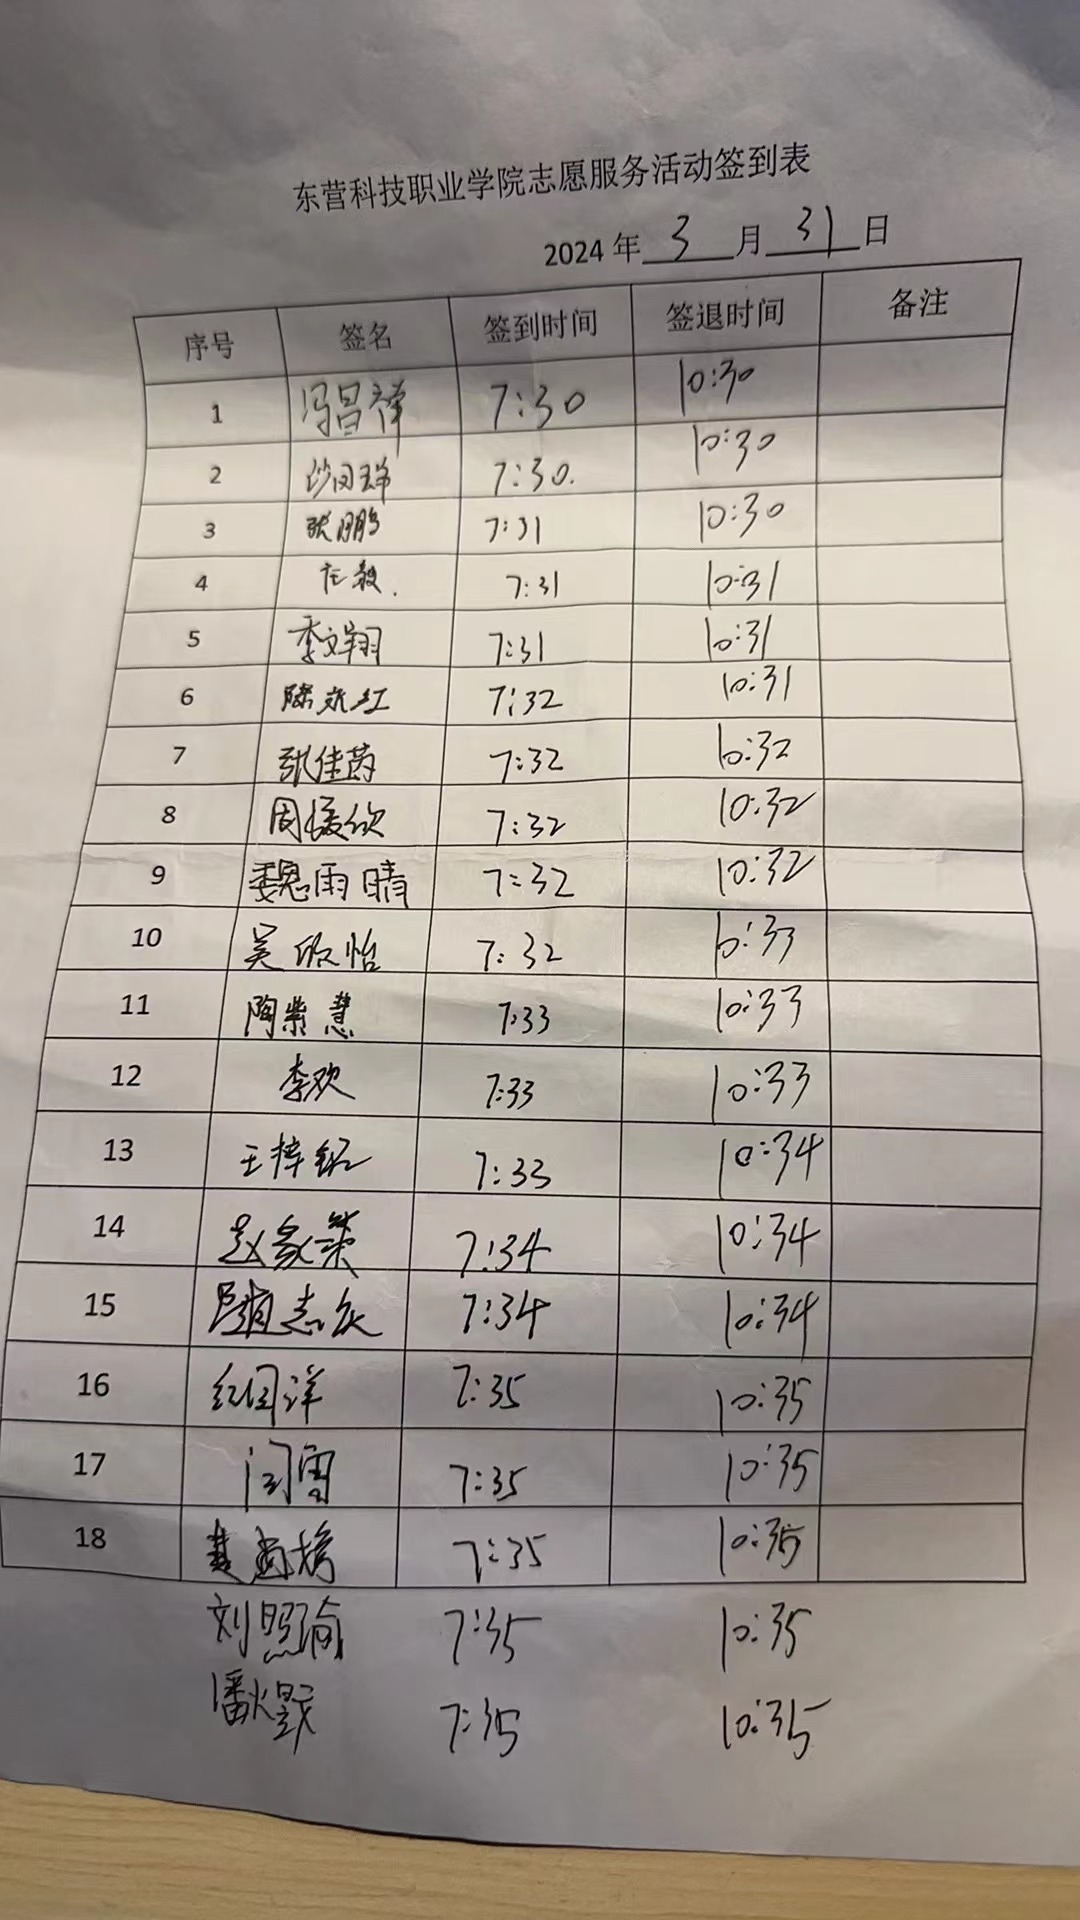 东营科技职业学院志愿服务活动签到表
2024 年 3 月 31 日
序号 签名 签到时间 签退时间 备注
1 冯昌祥 7:30 10:30
2 7:30. 10:30
3 张鹏 7:31 10:30
4 7:31 10:31
5 李文翔 7:31 10:31
6 陈永红 7:32 10:31
7 张佳茵 7:32 10:32
8 周媛欣 7:32 10:32
9 魏雨晴 7:32 10:32
10 吴欣怡 7:32 10:33
11 陶紫慧 7:33 10:33
12 李欢 7:33 10:33
13 王梓铭 7:33 10:34
14 赵家荣 7:34 10:34
15 7:34 10:34
16 纪国洋 7:35 10:35
17 闫雪 7:35 10:35
18 7:35 10:35
刘照瑜 7:35 10:35
7:35 10:35